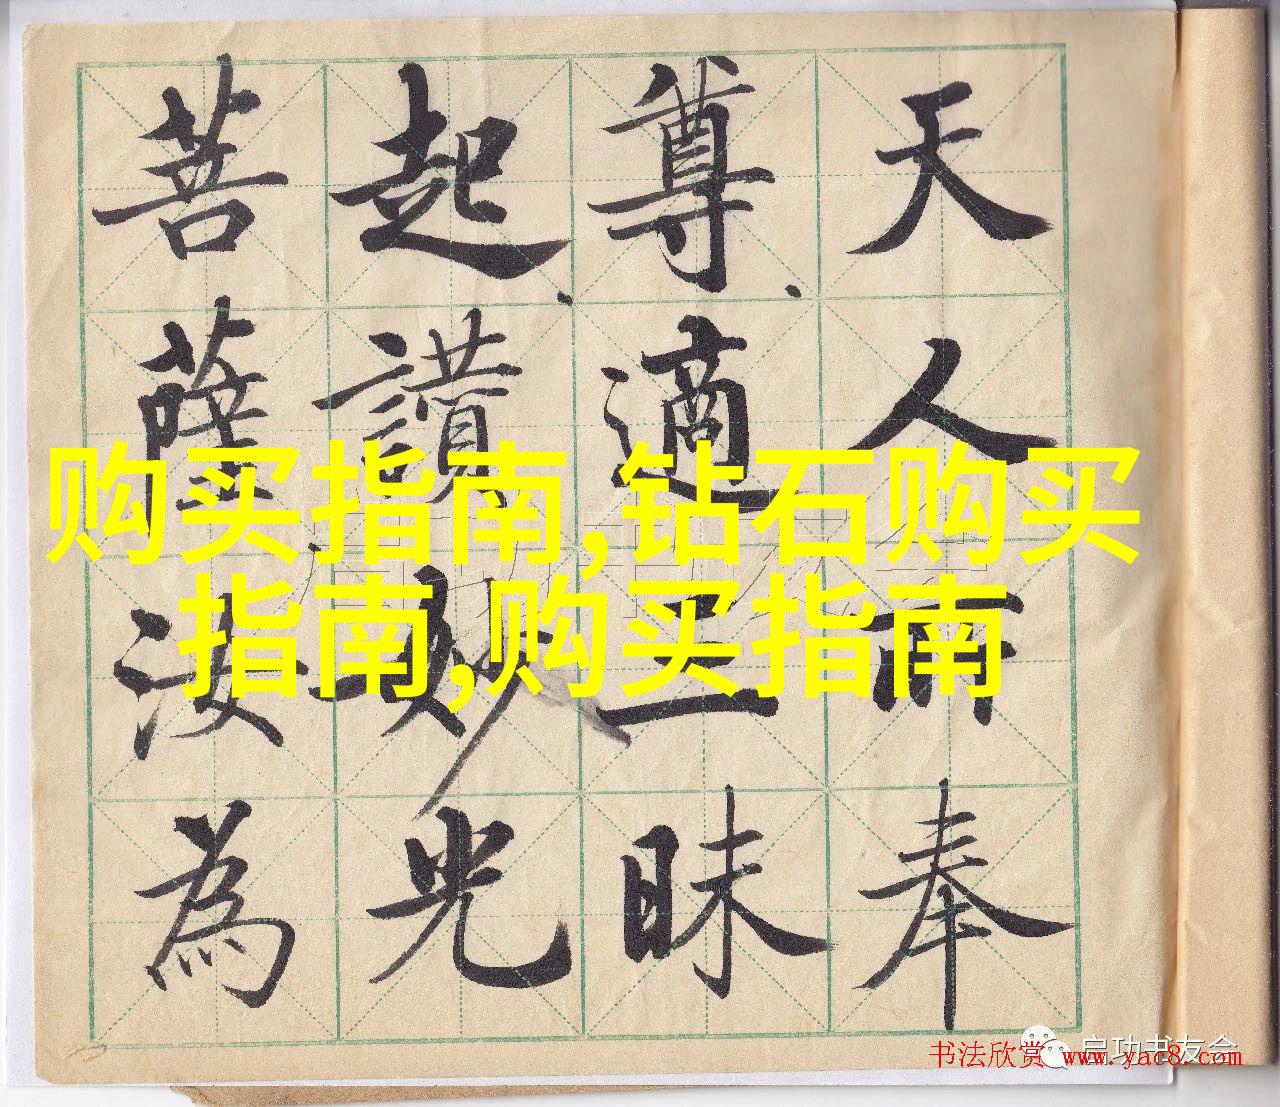 天人奉
尊適三昧
起讚妙光
菩薩汝為
购买指南,钻石购买
指南,购买指南
启功书友会
书法欣赏 www.yac8.com